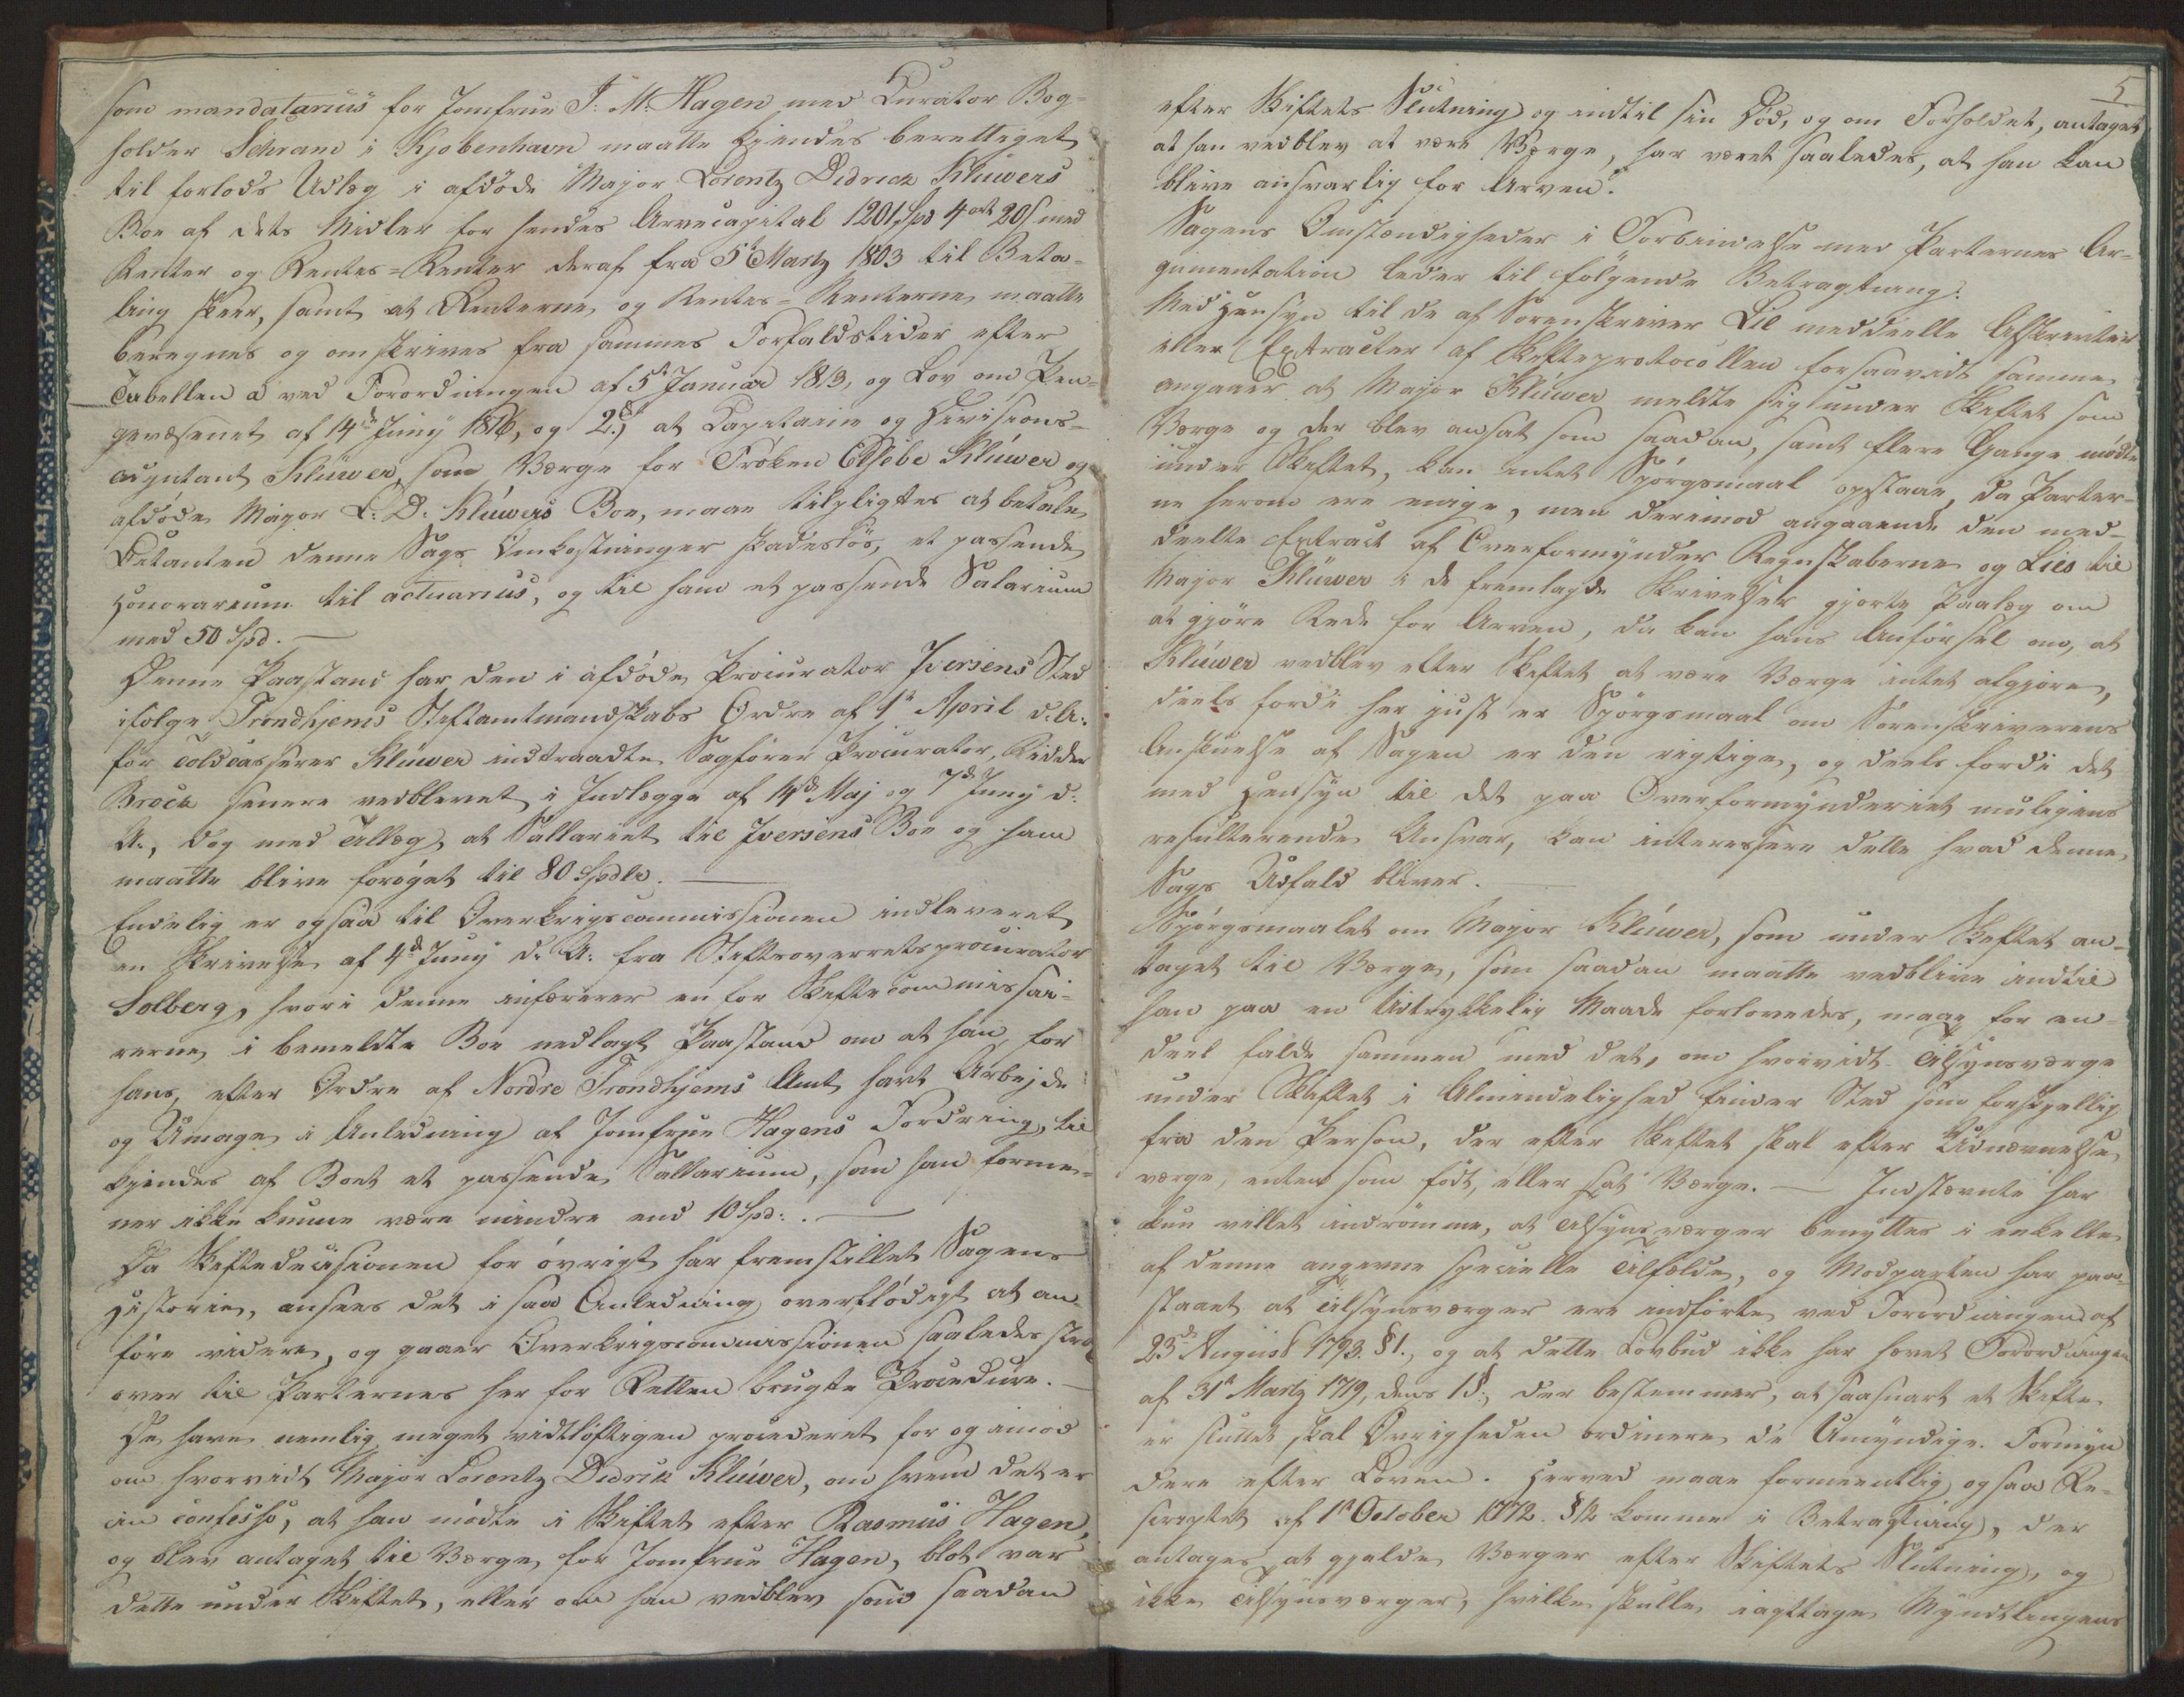 som mandatarius for Jomfrue J: M: Hagen med Curator Bog-
holder Schram i Kjøbenhavn maatte kjendes berettiget
til forlods Udlæg i afdøde Major Lorentz Didrick Klüwers
Boe af dets Midler for hendes Arvecapital 1201 Spd 4 ort 20 s med
Renter og Rentes-Renter deraf fra 5te Martz 1803 til Beta-
ling skeer, samt at Renterne og Rentes-Renterne maatte
beregnes og omskrives fra sammes Forfaldstider efter
Tabellen a ved Forordningen af 5te Januar 1813, og Lov om Pen-
gevæsenet af 14de Juny 1816, og 2.) at Capitaine og Divisions-
adjutant Klüwer som Værge for Frøken Elsebe Klüwer og
afdøde Major L: D: Klüwers Boe, maae tilpligtes at betale
Citanten denne Sags Omkostninger skadesløs, et passende
Honorarium til actuarius, og til ham et passende Salarium
med 50 Spd. —
Denne Paastand har den i afdøde Procurator Iversens Sted
ifølge Trondhjems Stiftamtmandskabs Ordre af 1te April d. A.
for Toldcasserer Klüwer indtraadte Sagfører Procurator, Ridder
Brock senere vedblevet i Indlægge af 14de Maj og 7de Juny d:
A., dog med Tillæg, at Sallariet til Iversens Boe og ham
maatte blive forøget til 80 Spdlr. —
Endelig er ogsaa til Overkrigscommissionen indleveret
en Skrivelse af 4de Juny d. A. fra Stiftsoverretsprocurator
Solberg, hvori denne inhærerer en for Skiftecommissai-
rerne i bemeldte Boe nedlagt Paastand om at han for
hans, efter Ordre af Nordre Trondhjems Amt havt Arbejde
og Umage i Anledning af Jomfrue Hagens Fordring, til
kjendes af Boet et passende Sallarium, som han forme-
ner ikke kunne være mindre end 10 Spd: . —
Da Skiftedecisionen for øvrigt har fremstillet Sagens
Historie, ansees det i saa Anledning overflødigt at an-
føre videre, og gaaer Overkrigscommissionen saaledes strax
over til Parternes her for Retten brugte Procedure. —
De have nemlig meget vidtløftigen procederet for og imod
om hvorvidt Major Lorentz Didrik Klüwer, om hvem det er
in confesso, at han mødte i Skiftet efter Rasmus Hagen,
og blev antaget til Værge for Jomfrue Hagen, blot var
dette under Skiftet, eller om han vedblev som saadan
5
efter Skiftets Slutning og indtil sin Død, og om Forholdet, antaget
at han vedblev at være Værge, har været saaledes, at han kan
blive ansvarlig for Arven.
Sagens Omstændigheder i Forbindelse med Parternes Ar-
gumentation leder til følgende Betragtning:
Med Hensyn til de af Sorenskriver Lie meddeelte Afskrivter
eller Extracter af Skifteprotocollen forsaavidt samme
angaaer at Major Klüwer meldte sig under Skiftet som
Værge og der blev ansat som saadan, samt flere Gange mødte
under Skiftet, kan intet Spørgsmaal opstaae, da Parter-
ne herom ere enige, men derimod angaaende den med-
deelte Extract af Overformynder Regnskaberne og Lies til
Major Klüwer i de fremlagde Skrivelser gjorte Paalæg om
at gjøre Rede for Arven, da kan hans Anførsel om, at
Klüwer vedblev efter Skiftet at være Værge intet afgjøre,
deels fordi her just er Spørgsmaal om Sorenskriverens
Anskuelse af Sagen er den rigtige, og deels fordi det
med Hensyn til det paa Overformynderiet muligens
resulterende Ansvar, kan interessere dette hvad denne
Sags Udfald bliver. —
Spørgsmaalet om Major Klüwer, som under Skiftet an-
taget til Værge, som saadan maatte vedblive indtil
han paa en Udtrykkelig Maade forlovedes, maae for en-
deel falde sammen med det, om hvorvidt Tilsynsværge
under Skiftet i Almindelighed finder Sted som forskjellig
fra den Person, der efter Skiftet skal efter Udnævnelse
værge, enten som født, eller sat Værge. — Indstævnte har
kun villet indrømme, at Tilsynsværger benyttes i enkelte
af denne angivne specielle Tilfælde, og Modparten har paa-
staaet at Tilsynsværger ere indførte ved Forordningen af
23de August 1793. §1., og at dette Lovbud ikke har hævet Forordningen
af 31te Martz 1719, dens 1§, der bestemmer, at saasnart et Skifte
er sluttet skal Øvrigheden ordinere de Umyndige Formyn
dere efter Loven. Herved maae formeentlig ogsaa Re-
scriptet af 1te October 1772. §12 komme i Betragtning, der
antages at gjelde Værger efter Skiftets Slutning, og
ikke Tilsynsværger, hvilke skulle iagttage Myndtlingens